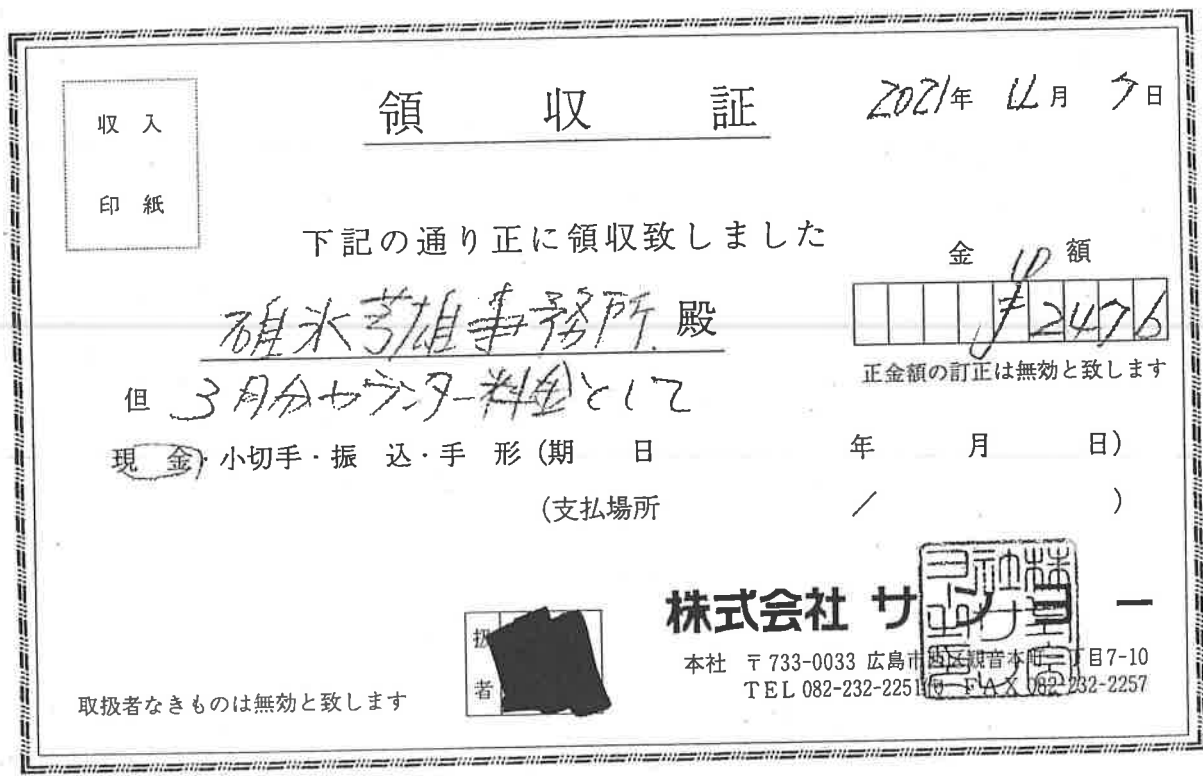 収入
印紙
領収証
2021年 4月 7日
下記の通り正に領収致しました
金額
碓氷芳雄事務所 殿
¥2476
正金額の訂正は無効と致します
但 3月分カウンター料金として
現金・小切手・振込・手形(期日 年 月 日)
(支払場所 / )
株式会社 サンヨー
扱
者
本社 〒733-0033 広島市西区観音本町 丁目7-10
TEL 082-232-2251 FAX 082-232-2257
取扱者なきものは無効と致します